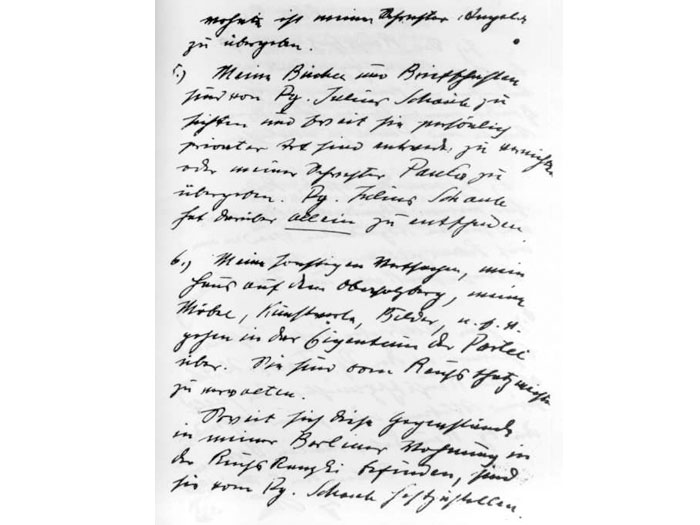 wohnung ist meiner Schwester Angela
zu übergeben.
5.) Meine Bücher und Briefschaften
sind von Pg. Julius Schaub zu
sichten und soweit sie persönlich
privater Art sind entweder zu vernichten
oder meiner Schwester Paula zu
übergeben. Pg. Julius Schaub
hat darüber allein zu entscheiden.
6.) Meine sonstigen Wertsachen, mein
Haus auf dem Obersalzberg, meine
Möbel, Kunstwerke, Bilder, u.s.w.
gehen in das Eigentum der Partei
über. Sie sind vom Reichsschatzmeister
zu verwalten.
Soweit sich diese Gegenstände
in meiner Berliner Wohnung in
der Reichskanzlei befinden, sind
sie vom Pg. Schaub festzustellen.